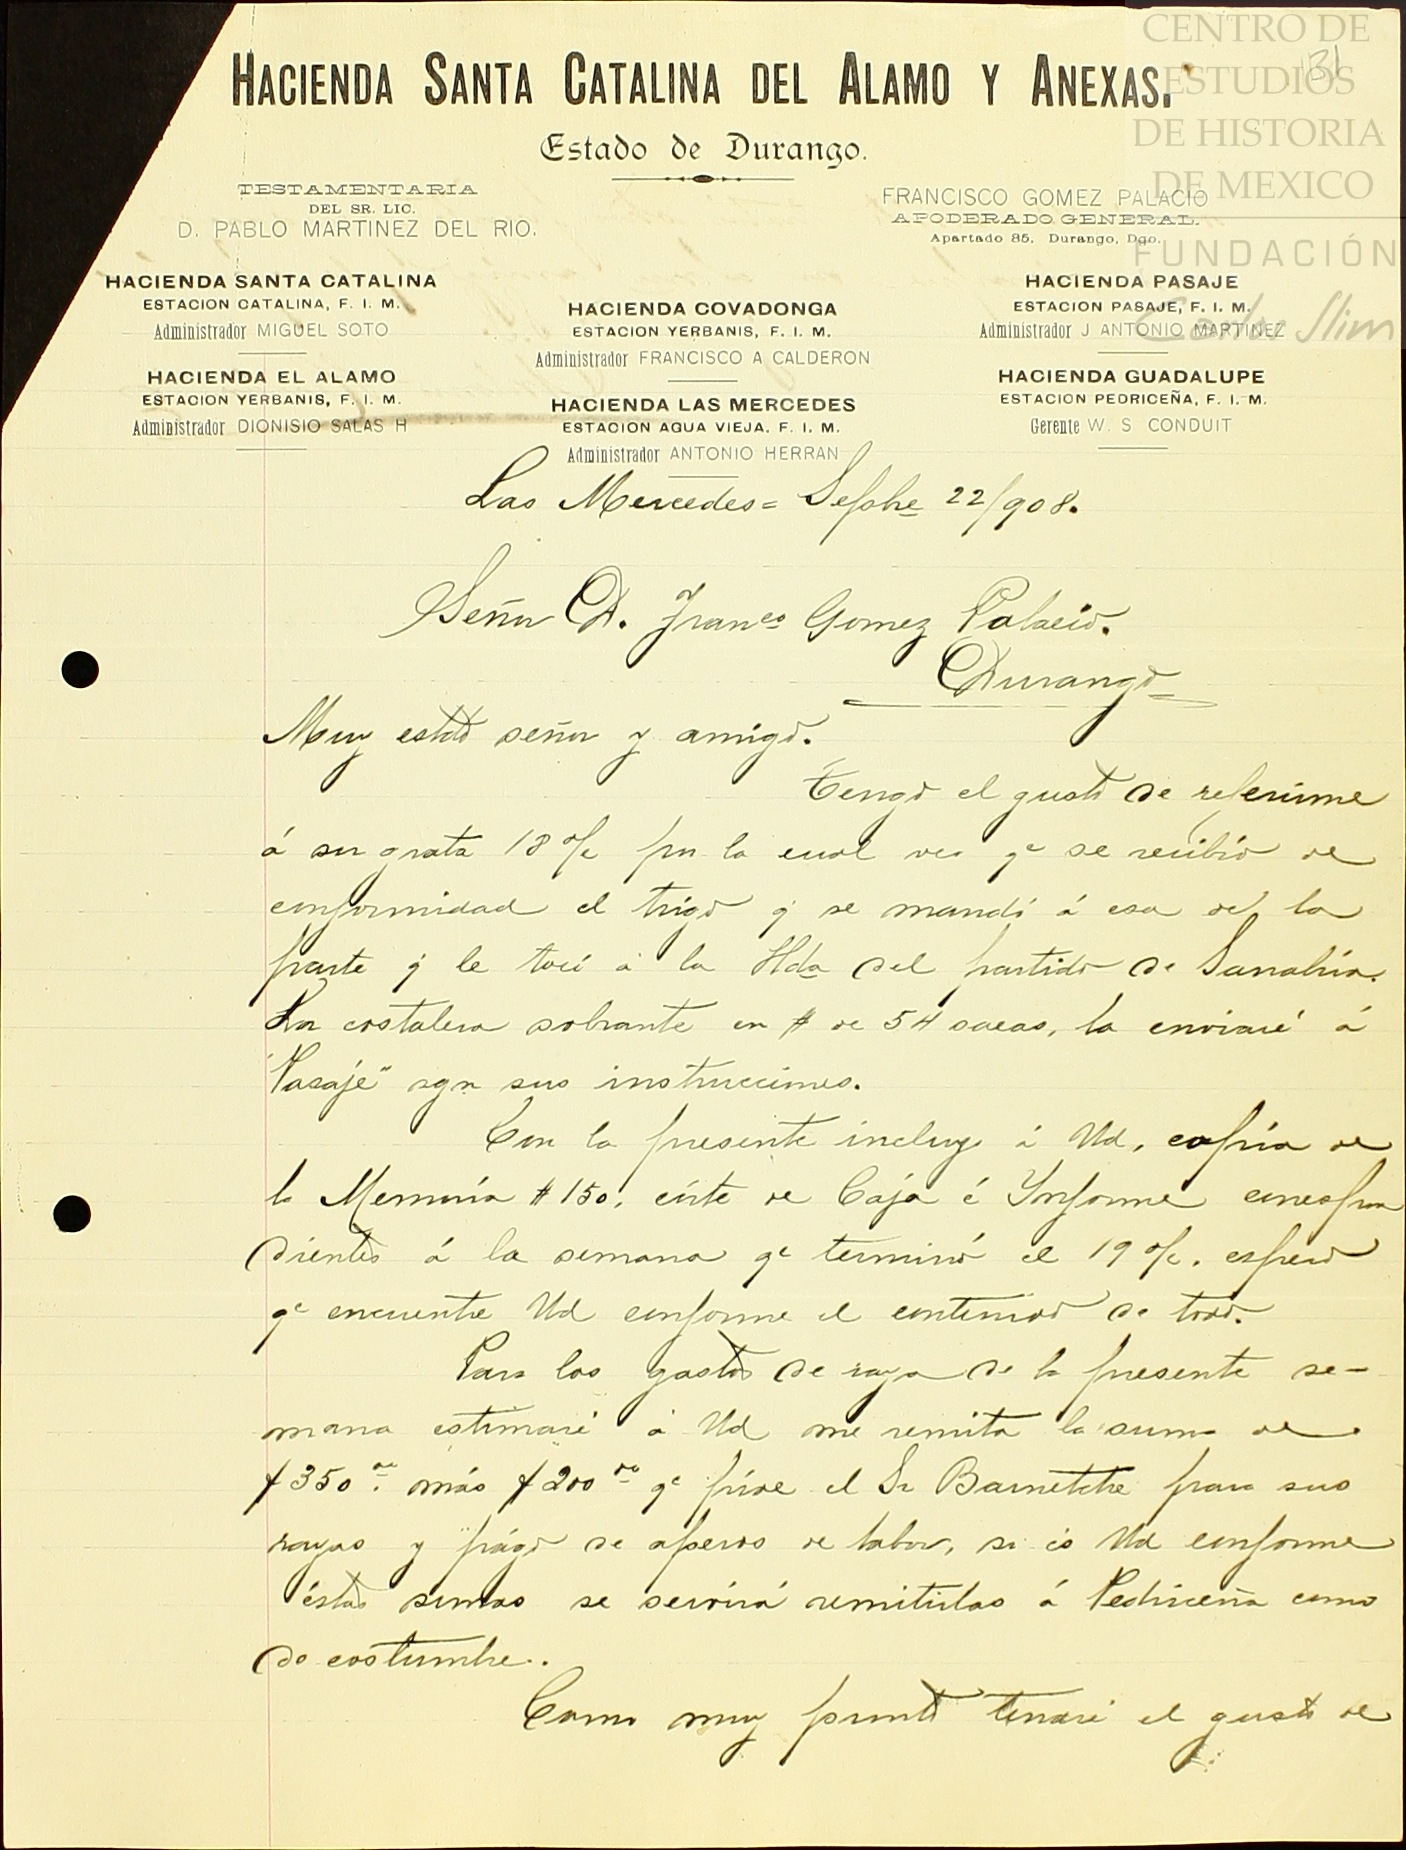 CENTRO DE
ESTUDIOS
DE HISTORIA
DE MEXICO
FUNDACIÓN
Carlos Slim
131
HACIENDA SANTA CATALINA DEL ALAMO Y ANEXAS.
Estado de Durango.
TESTAMENTARIA
DEL SR. LIC.
D. PABLO MARTINEZ DEL RIO.
FRANCISCO GOMEZ PALACIO
APODERADO GENERAL.
Apartado 85. Durango, Dgo.
HACIENDA SANTA CATALINA
ESTACION CATALINA, F. I. M.
Administrador MIGUEL SOTO
HACIENDA EL ALAMO
ESTACION YERBANIS, F. I. M.
Administrador DIONISIO SALAS H
HACIENDA COVADONGA
ESTACION YERBANIS, F. I. M.
Administrador FRANCISCO A CALDERON
HACIENDA LAS MERCEDES
ESTACION AGUA VIEJA. F. I. M.
Administrador ANTONIO HERRAN
HACIENDA PASAJE
ESTACION PASAJE, F. I. M.
Administrador J ANTONIO MARTINEZ
HACIENDA GUADALUPE
ESTACION PEDRICEÑA, F. I. M.
Gerente W. S CONDUIT
Las Mercedes = Sepbre 22/908.
Señor D. Franco Gomez Palacio.
Durango
Muy estdo señor y amigo.
Tengo el gusto de referirme
á su grata 18 o/c por la cual veo qe se recibió de
conformidad el trigo q' se mandó á esa de la
parte q' le tocó a la Hda del partido de Sanabria.
La costalera sobrante en # de 54 sacas, la enviaré á
"Pasaje" sgn sus instrucciones.
Con la presente incluyo á Ud, copia de
la Memoria #150, córte de Caja é Ynforme correspon
dientes á la semana qe terminó el 19 o/c. espero
qe encuentre Ud conforme el contenido de todo.
Para los gastos de raya de la presente se-
mana estimaré á Ud me remita la suma de
$350.oo más $200oo qe pide el Sr Barnetche para sus
rayas y págo de aperos de labor, si és Ud conforme
éstas sumas se servirá remitirlas á Pedriceña como
de costumbre.
Como muy pronto tendré el gusto de